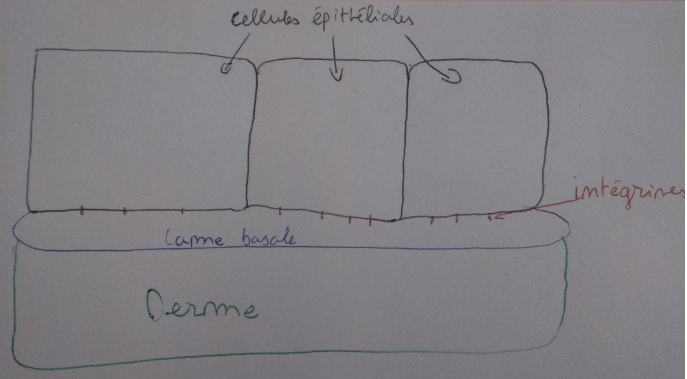 cellules épithéliales
intégrines
Lame basale
Derme